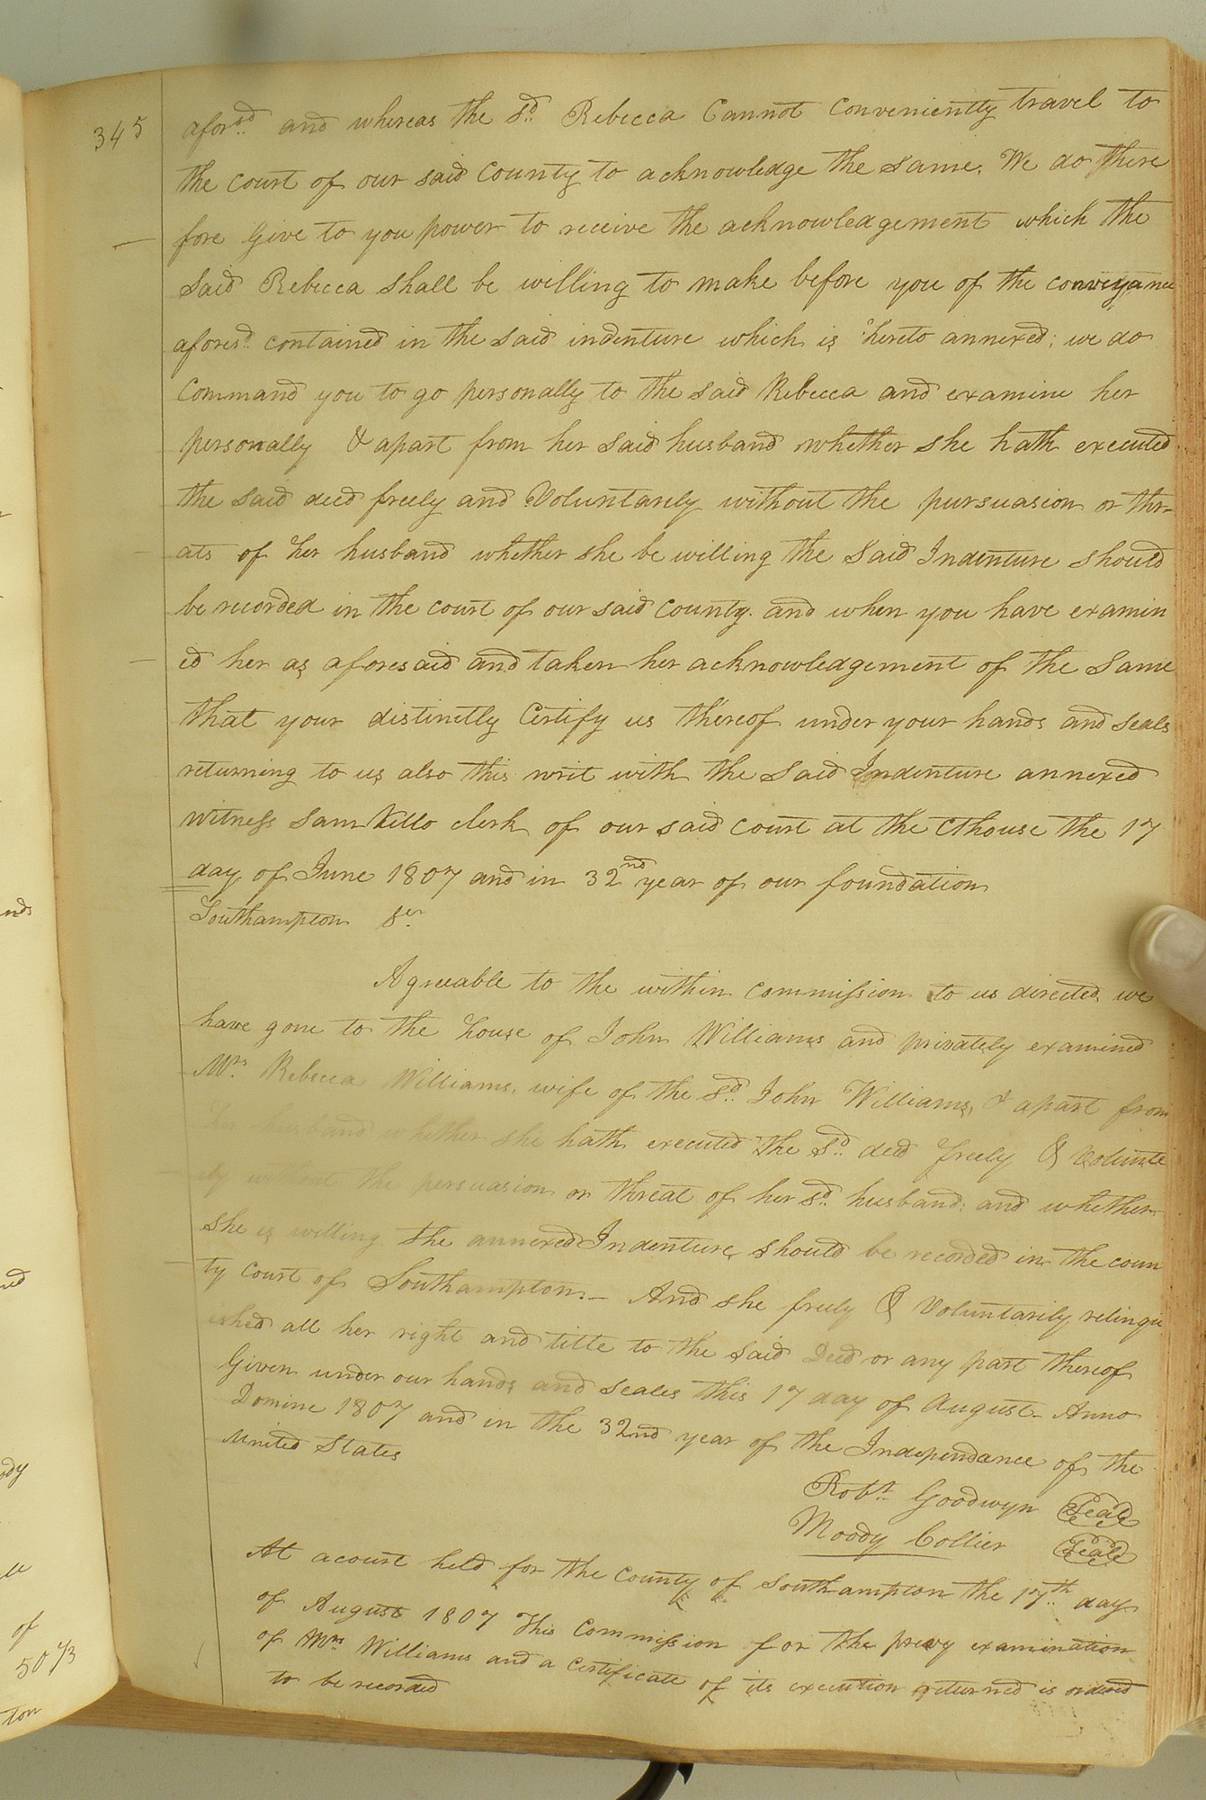 345
afors.d and whereas the s.d Rebecca Cannot conveniently travel to
the court of our said county to acknowledge the same. We do there
fore Give to you power to receive the acknowledgement which the
said Rebecca shall be willing to make before you of the conveyance
aforesd. contained in the said indenture which is hereto annexed; we do
Command you to go personally to the said Rebecca and examine her
personally & apart from her said husband whether she hath executed
the said deed freely and Voluntarily without the pursuasion or thr-
ats of her husband whether she be willing the said Indenture should
be recorded in the court of our said county. and when you have examin
ed her as aforesaid and taken her acknowledgement of the same
that your distinctly Certify us thereof under your hands and seals
returning to us also this writ with the said Indenture annexed
witness Sam Kello clerk of our said court at the Cthouse the 17
day of June 1807 and in 32nd year of our foundation
Southampton Sct.
Agreeable to the within commission to us directed we
have gone to the house of John Williams and privately examined
Mrs. Rebecca Williams, wife of the s.d John Williams, & apart from
her husband whether she hath executed the s.d deed freely & Volunta
ily without the persuasion or threat of her s.d husband; and whether
she is willing the annexed Indenture should be recorded in the coun
ty court of Southampton.- And she freely & Voluntarily relinqu
ished all her right and title to the said Deed or any part thereof
Given under our hands and seales this 17 day of August- Anno
Domine 1807 and in the 32nd year of the Independance of the
United States
Robt. Goodwyn Seale
Moody Collier Seale
At a court held for the county of Southampton the 17th. day
of August 1807 This Commission for the privy examination
of Mrs Williams and a certificate of its execution returned is ordered
to be recorded
nds
ed
dy
of
50 1/3
ton